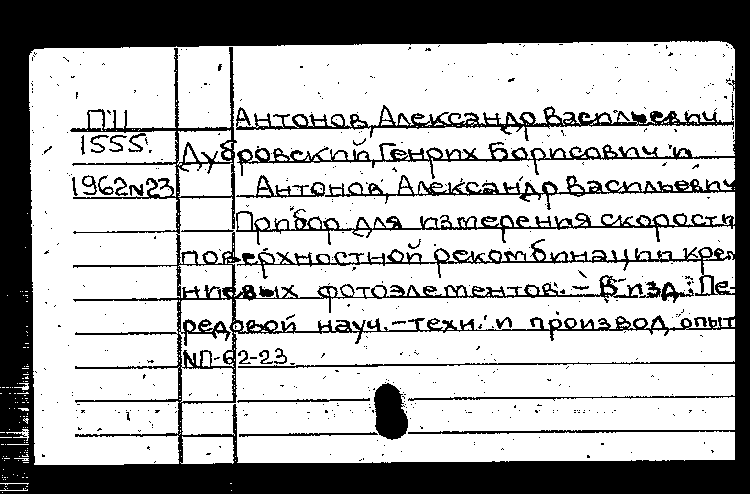 ПП Антонов, Александр Васильевич
1555. Дубровский, Генрих Борисович и
1962N23 Антонов, Александр Васильевич
Прибор для измерения скорости
поверхностной рекомбинации крем
ниевых фотоэлементов. – В изд.: Пе-
редовой науч.-техн. и производ. опыт
NП-62-23.